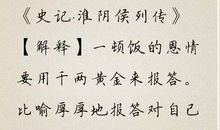 《史记·淮阴侯列传》
【解释】一顿饭的恩情
要用千两黄金来报答。
比喻厚厚地报答对自己